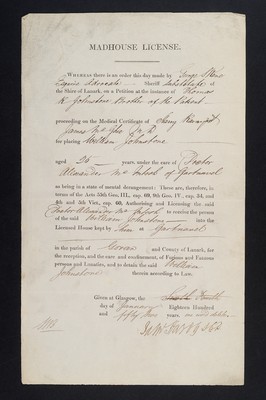 MADHOUSE LICENSE.
WHEREAS there is an order this day made by George
Esquire Advocate Sheriff Substitute of
the Shire of Lanark, on a Petition at the instance of Thomas
R. Johnstone Brother of the Patient
proceeding on the Medical Certificate of Henry
James
for placing William Johnstone
aged 26 years, under the care of Doctor
Alexander McIntosh of Gartnavel
as being in a state of mental derangement: These are, therefore, in
terms of the Acts 55th Geo. III., cap. 69, 9th Geo. IV., cap. 34, and
4th and 5th Vict., cap. 60, Authorising and Licensing the said
Doctor Alexander McIntosh to receive the person
of the said William Johnstone into the
Licensed House kept by him at Gartnavel
in the parish of Govan and County of Lanark, for
the reception, and the care and confinement, of Furious and Fatuous
persons and Lunatics, and to detain the said William
Johnstone therein according to Law.
Given at Glasgow, the
day of January Eighteen Hundred
and fifty two years